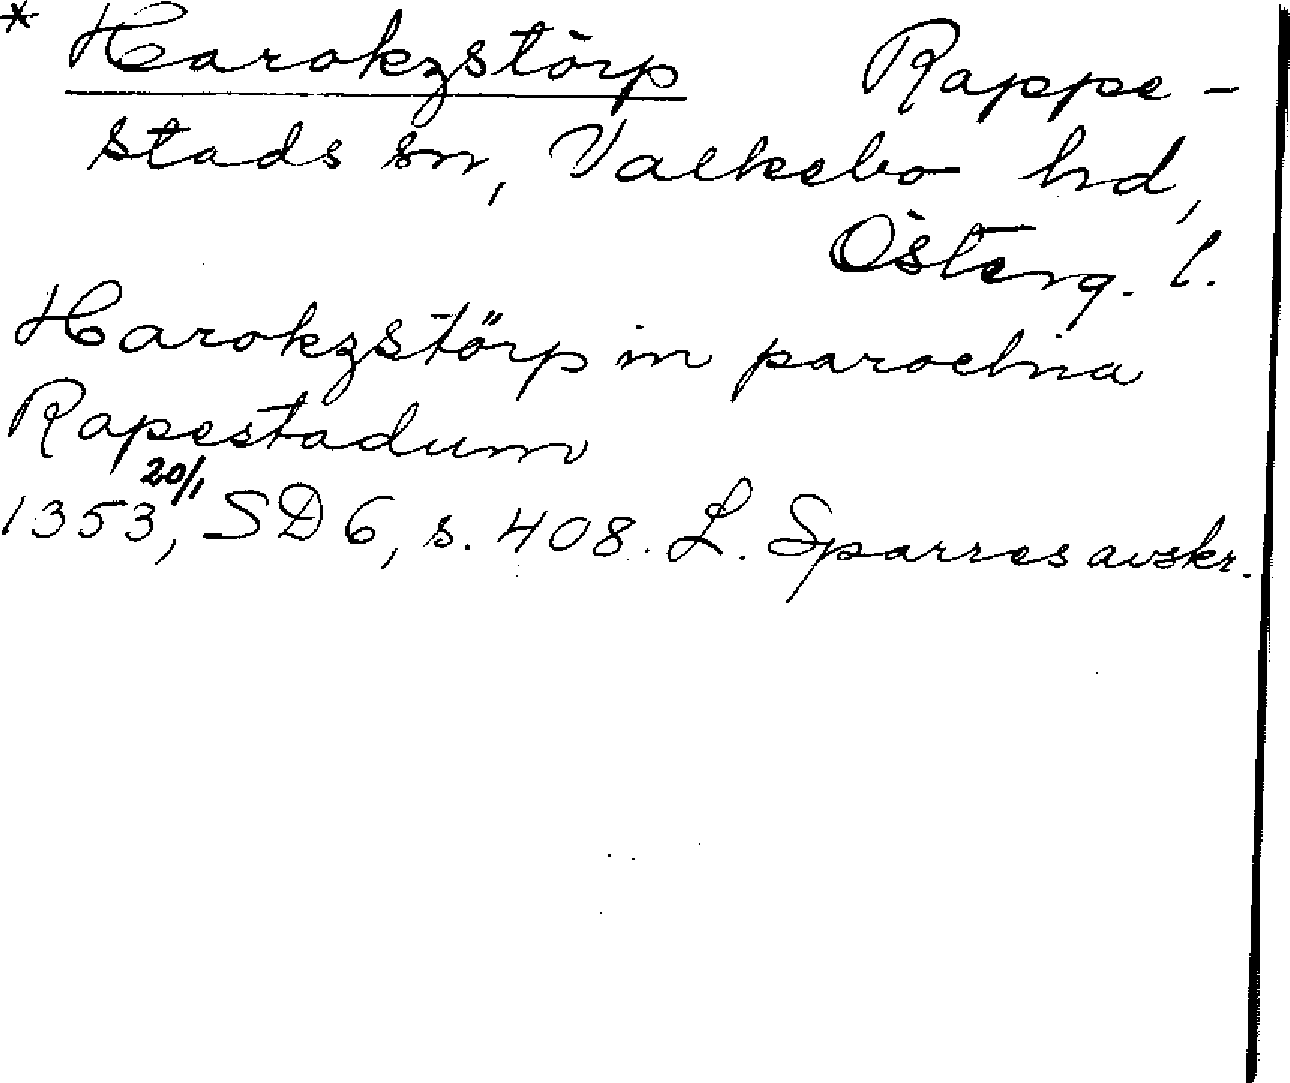 * Harokzstörp Rappe-
stads sn, Valkebo hd,
Österg. l.
Harokzstörp in parochia
Rapestadum
1353 20/1, SD 6, s. 408. L. Sparres avskr.